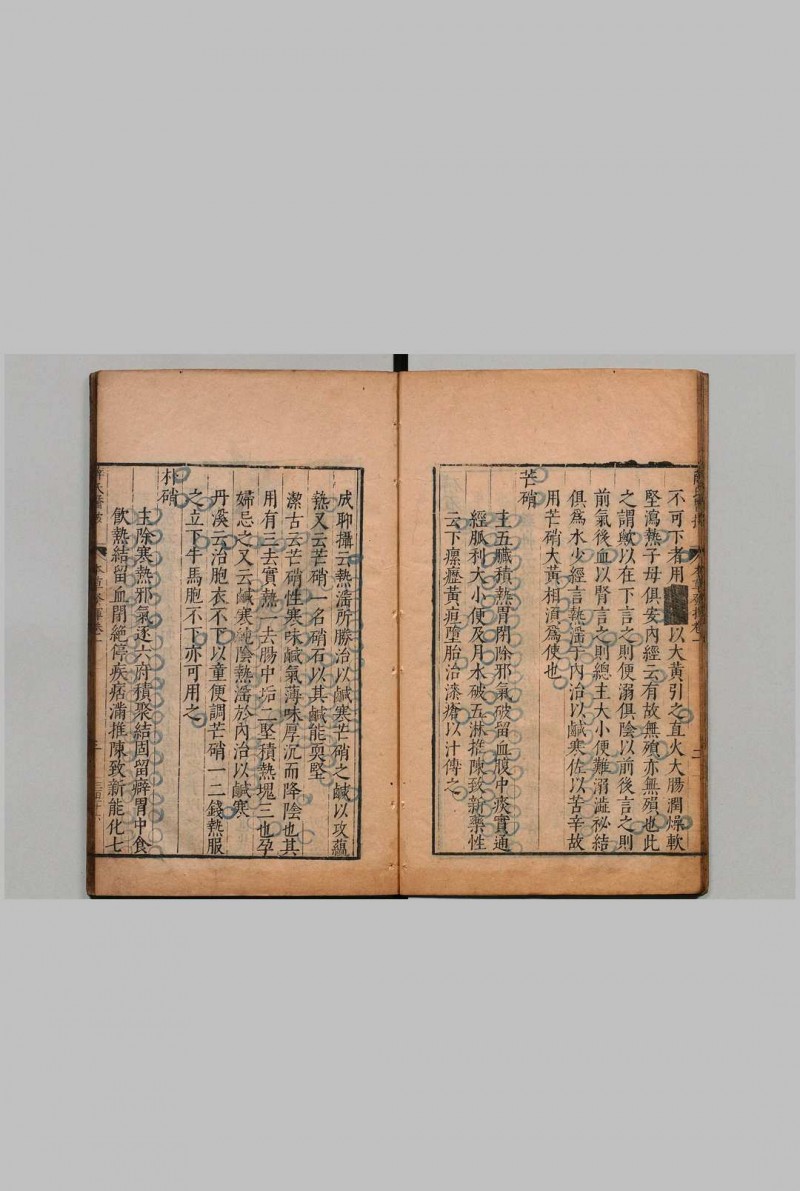 不可下者用以大黃引之直火大腸潤燥軟
堅瀉熱子母俱安內經云有故無殞亦無殞也此
之謂歟以在下言之則便溺俱陰以前後言之則
前氣後血以腎言之則總主大小便難溺澁秘結
俱爲水少經言熱滛于內治以鹹寒佐以苦辛故
用芒硝大黃相湏爲使也
芒硝
主五臟積熱胃閉除邪氣破留血腹中痰實通
經脈利大小便及月水破五淋推陳致新藥性
云下瘰癧黃疸墮胎治漆瘡以汁傅之
成聊攝云熱滛所勝治以鹹寒芒硝之鹹以攻蘊
熱又云芒硝一名硝石以其鹹能耎堅
潔古云芒硝性寒味鹹氣薄味厚沉而降陰也其
用有三去實熱一去腸中垢二堅積熱塊三也孕
婦忌之又云鹹寒純陰熱滛於內治以鹹寒
丹溪云治胞衣不下以童便調芒硝一二錢熱服
之立下牛馬胞不下亦可用之
朴硝
主除寒熱邪氣逐六府積聚結固留癖胃中食
飮熱結留血閉絕停痰痞滿推陳致新能化七